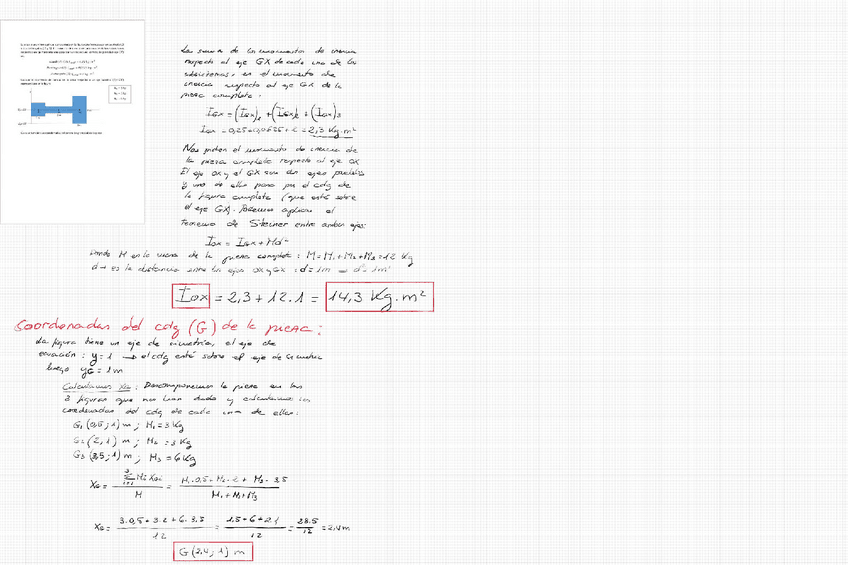 La suma de los momentos de inercia
respecto al eje GX de cada uno de los
subsistemas, en el momento de
inercia respecto al eje GX de la
pieza completa.
IGX = (IGX)1 + (IGX)2 + (IGX)3
IGX = 0,25+0,0625+2 = 2,3 Kg.m²
Nos piden el momento de inercia de
la pieza completa respecto al eje OX
El eje OX y el GX son dos ejes paralelos
y uno de ellos pasa por el cdg de
la figura completa (que está sobre
el eje GX). Podemos aplicar el
teorema de Steiner entre ambos ejes:
IOX = IGX + Md²
Donde M es la masa de la pieza completa : M=M1+M2+M3=12 Kg
d → es la distancia entre los ejes OX y GX : d=1m ⇒ d²=1m²
IOX = 2,3 + 12.1 = 14,3 Kg.m²
Coordenadas del cdg (G) de la pieza:
La figura tiene un eje de simetría, el eje de
ecuación : y=1 → el cdg está sobre el eje de simetría
luego yG = 1m
Calculamos XG : Descomponemos la pieza en las
3 figuras que nos han dado y calculamos las
coordenadas del cdg de cada una de ellas:
G1 (0,5 ; 1) m ; M1 = 3 Kg
G2 (2, 1) m ; M2 = 3 Kg
G3 (3,5 ; 1) m ; M3 = 6 Kg
XG = Σ Mi XGi / M = M1·0,5 + M2·2 + M3·3,5 / M1+M2+M3
XG = 3·0,5+3·2+6·3,5 / 12 = 1,5+6+21 / 12 = 28.5 / 12 = 2,4m
G(2,4 ; 1) m